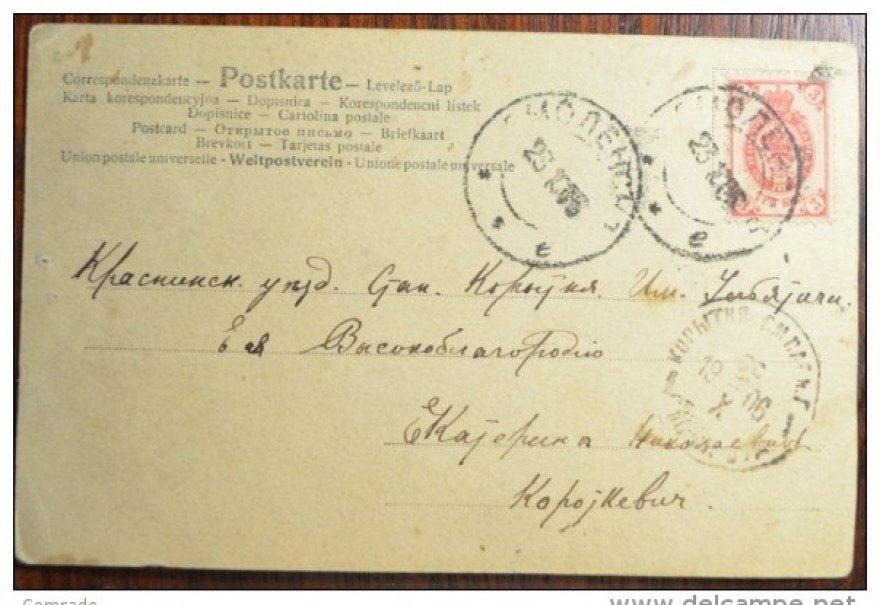 Correspondenzkarte — Postkarte — Levelező-Lap
Karta korespondencyjna — Dopisnica — Korespondencni listek
Dopisnice — Cartolina postale
Postcard — Открытое письмо — Briefkaart
Brevkort — Tarjetas postale
Union postale universelle - Weltpostverein - Unione postale universale
23 10 06
е
3
3
3
Краснинск. уѣзд. Стан. Корытня. Им.
Ея Высокоблагородію
Екатерина Николаевна
Короткевич.
КОРЫТНЯ СМОЛЕН. Г.
19 06
X
Comrade
www.delcampe.net